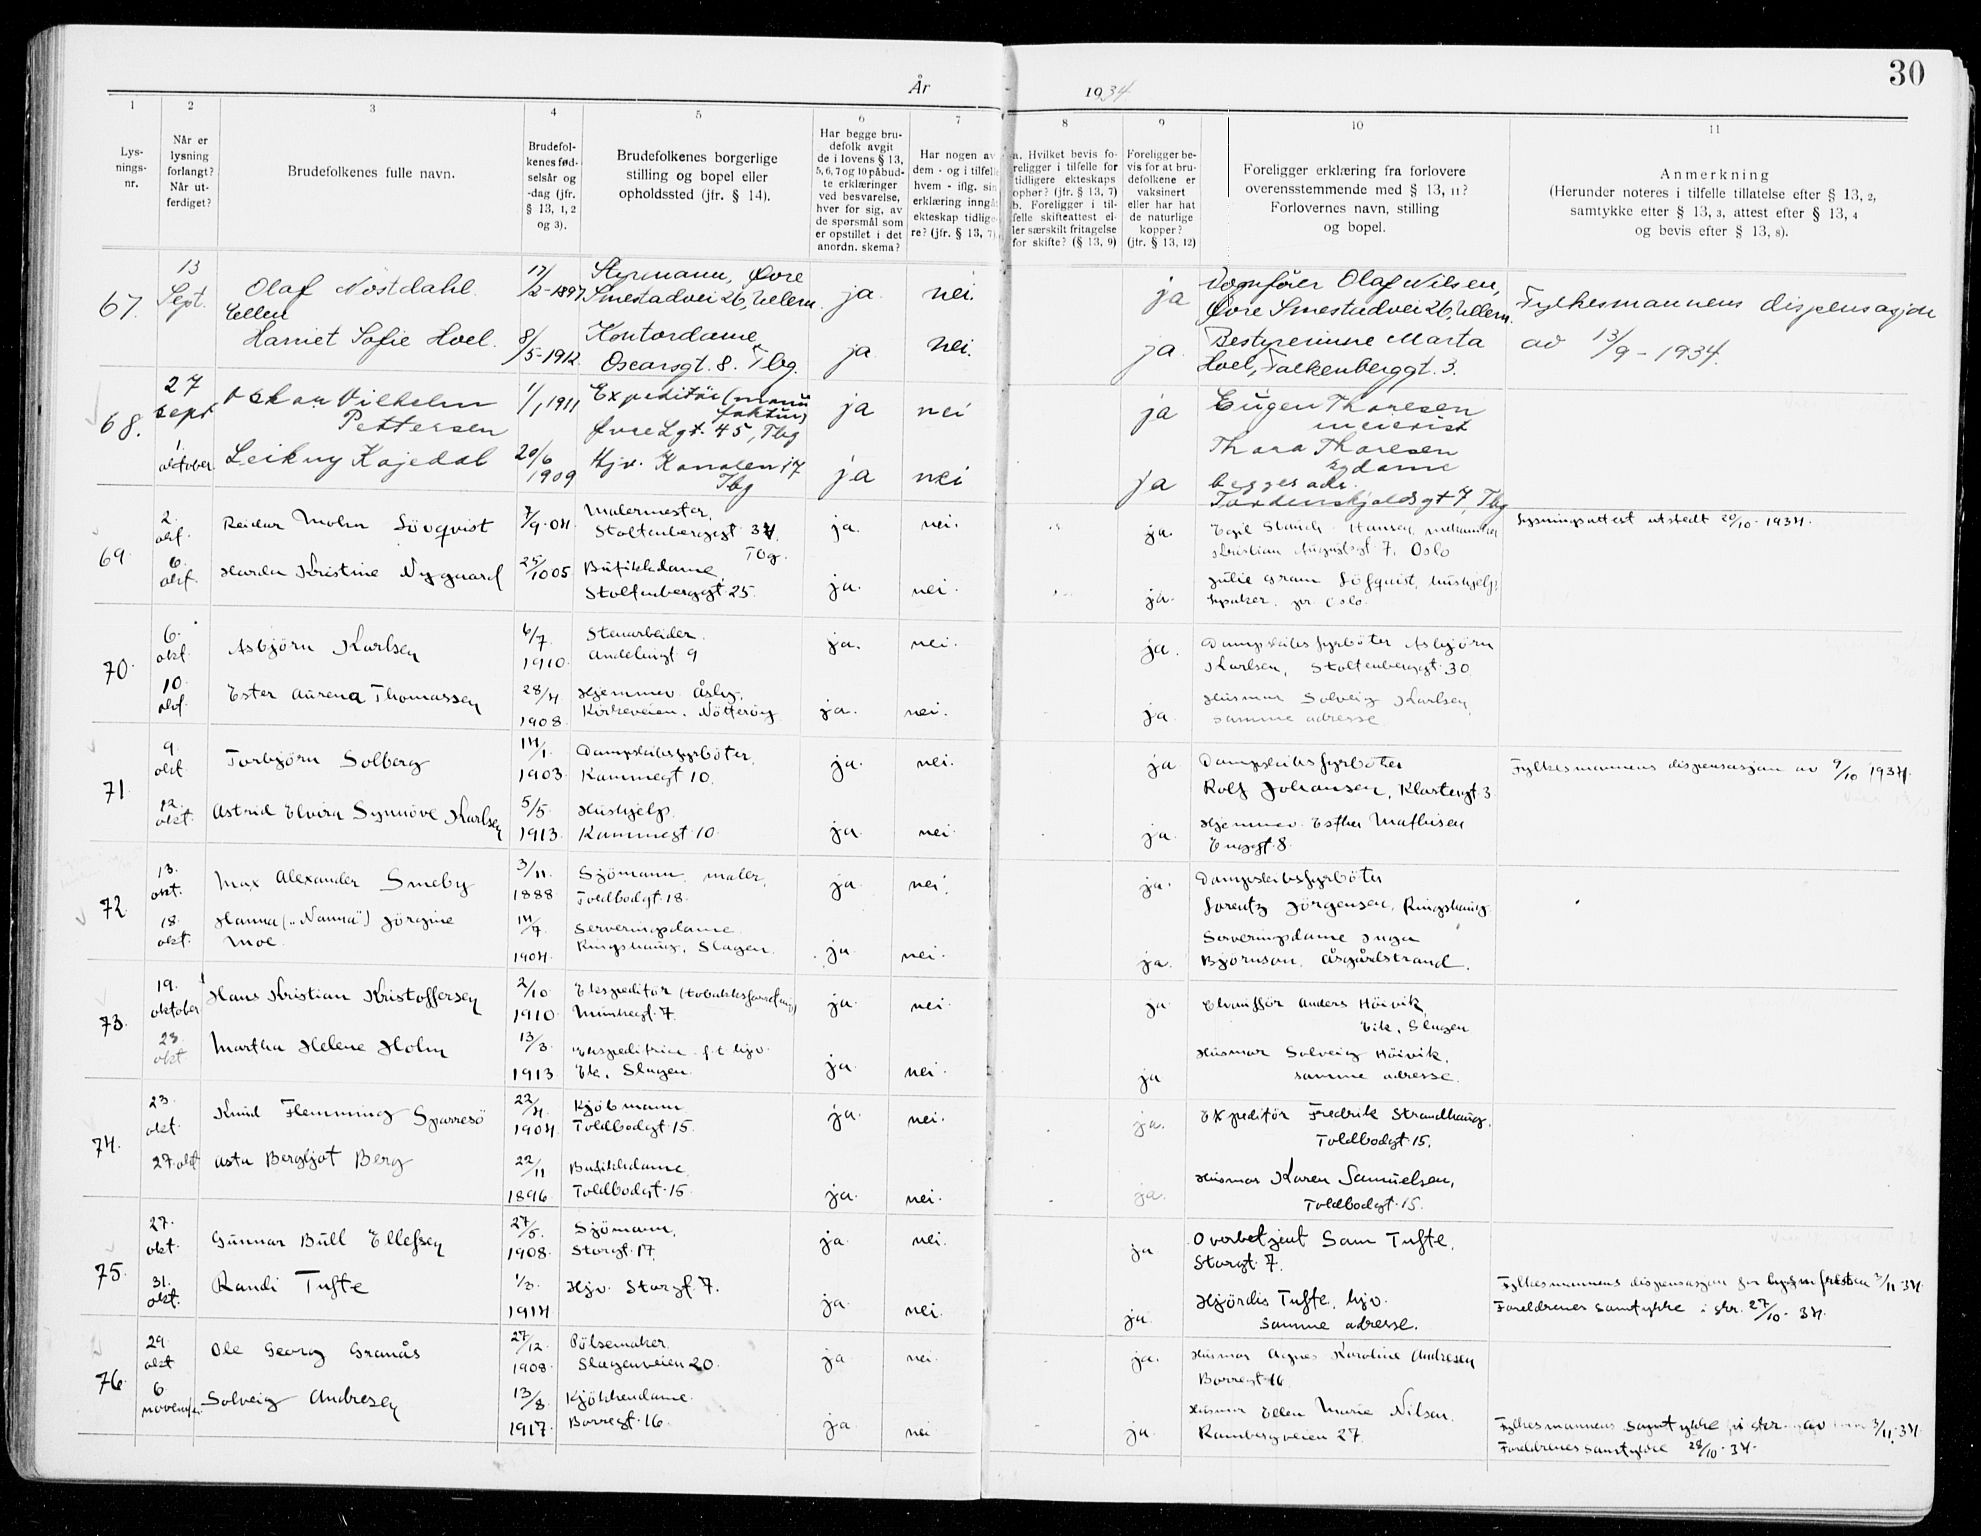 30
År 1934
1 2 3 4 5 6 7 8 9 10 11
Lysningsnr.
Når er lysning forlangt? Når utferdiget?
Brudefolkenes fulle navn.
Brudefolkenes fødselsår og -dag (jfr. § 13, 1, 2 og 3).
Brudefolkenes borgerlige stilling og bopel eller opholdssted (jfr. § 14).
Har begge brudefolk avgit de i lovens § 13, 5, 6, 7 og 10 påbudte erklæringer ved besvarelse, hver for sig, av de spørsmål som er opstillet i det anordn. skema?
Har nogen av dem - og i tilfelle hvem - iflg. sin erklæring inngått ekteskap tidligere? (jfr. § 13, 7).
a. Hvilket bevis foreligger i tilfelle for tidligere ekteskaps ophør? (jfr. § 13, 7)
b. Foreligger i tilfelle skifteattest eller særskilt fritagelse for skifte? (§ 13, 9)
Foreligger bevis for at brudefolkene er vaksinert eller har hat de naturlige kopper? (jfr. § 13, 12)
Foreligger erklæring fra forlovere overensstemmende med § 13, 11? Forlovernes navn, stilling og bopel.
Anmerkning
(Herunder noteres i tilfelle tillatelse efter § 13, 2, samtykke efter § 13, 3, attest efter § 13, 4 og bevis efter § 13, 8).
67. 13 Sept. Olaf Nøstdahl 17/2-1897 Styrmann, Øvre Smestadvei 26, Ullern. ja nei. ja Olaf Nilsen, Øvre Smestadvei 26, Ullern. Fylkesmannens dispensasjon
Ellen Harriet Sofie Hoel. 8/5-1912. Kontordame Oscarsgt. 8. Tbg. ja nei. ja Bestyrerinne Marta Hoel, Falkenberggt. 3. av 13/9-1934.
68. 27 sept Oskar Vilhelm Pettersen 1/1 1911 Expeditør (manufaktur) Øvre Lgt. 45, Tbg ja nei ja Eugen Thoresen meierist
1 oktober Leikny Kajedal 20/6 1909 Hjv. Kanalen 17 Tbg ja nei ja Thora Thoresen sydame begges adr. Tordenskjoldsgt 7, Tbg
69. 2. okt. Reidar Mohn Lövqvist 7/9-04 Malermester, Stoltenberggt 34 Tbg. ja. nei. ja. Egil Hansen, Kristian Augustsgt 7. Oslo Lysningsattest utstedt 20/10-1934.
6. okt. Kristine Nygaard 25/10 05 Butikkdame, Stoltenberggt 25. ja. nei. ja. Julie Gram Löfquist, hushjelp, pr. Oslo.
70. 6. okt Asbjörn Karlsen 6/7 1910. Stenarbeider. Andebugt 9 ja. nei. ja. Dampskibsfyrböter Asbjörn Karlsen, Stoltenberggt 30.
10. okt. Ester Aurena Thomassen 28/4 1908. Hjemmev. Åsly, Kirkeveien, Nötteröy ja. nei. ja. Husmor Solveig Karlsen, samme adresse.
71. 9. okt. Torbjörn Solberg 14/1 1903. Dampskibsfyrböter, Kammegt 10. ja. nei. ja. Dampskibsfyrböter Rolf Johansen, Klostergt 3 Fylkesmannens dispensasjon av 9/10 1934.
12. okt. Astrid Elvira Synnöve Karlsen 5/5 1913. Hushjelp. Kammegt 10. ja. nei. ja. Hjemmev. Esther Mathisen Enggt 8.
72. 13. okt. Max Alexander Smeby 3/11 1888 Sjömann, maler, Toldbodgt 18. ja. nei. ja. Dampskibsfyrböter Lorentz Jörgensen, Ringshaug.
18. okt. Hanna ("Nanna") Jörgine Moe. 14/7 1904. Serveringsdame. Ringshaug, Slagen. ja. nei. ja. Serveringsdame Inga Björnson, Åsgårdstrand.
73. 19. oktober Hans Kristian Kristoffersen 2/10 1910. Ekspeditör (tobakksforretning) Munkegt. 7. ja. nei. ja. Anders Höivik, Eik, Slagen
23. okt Martha Helene Holm 13/3 1913. Ekspeditrice f.t. hjv. Eik, Slagen. ja. nei. ja Husmor Solveig Höivik, samme adresse.
74. 23. okt Knud Flemming Sparresö 22/4 1904 Kjöbmann Toldbodgt 15. ja. nei. ja. Expeditör Fredrik Strandhaug, Toldbodgt 15.
27. okt Asta Bergljot Berg 22/11 1896. Butikkdame, Toldbodgt 15. ja. nei. ja. Husmor Karen Samuelsen, Toldbodgt 15.
75. 27. okt. Gunnar Bull Ellefsen 27/5. 1908. Sjömann, Storgt 17. ja. nei. ja Overbetjent Sam Tufte, Storgt 7.
31. okt. Randi Tufte 1/3. 1914. Hjv. Storgt 7. ja. nei. ja. Hjördis Tufte, hjv. samme adresse. Fylkesmannens dispensasjon for lysn.fristen 2/11-34. Foreldrenes samtykke i skr. 27/10-34.
76. 29. okt Ole Georg Granås 27/12. 1908. Pölsemaker, Slagenveien 20. ja nei. ja. Husmor Agnes Karoline Andresen Borregt 16.
6. november Solveig Andresen 13/8 1917. Kjökkendame. Borregt 16. ja. nei ja. Husmor Ellen Marie Nilsen. Rambergveien 27. Fylkesmannens samtykke i skr. av 3/11.34. Foreldrenes samtykke 28/10-34.